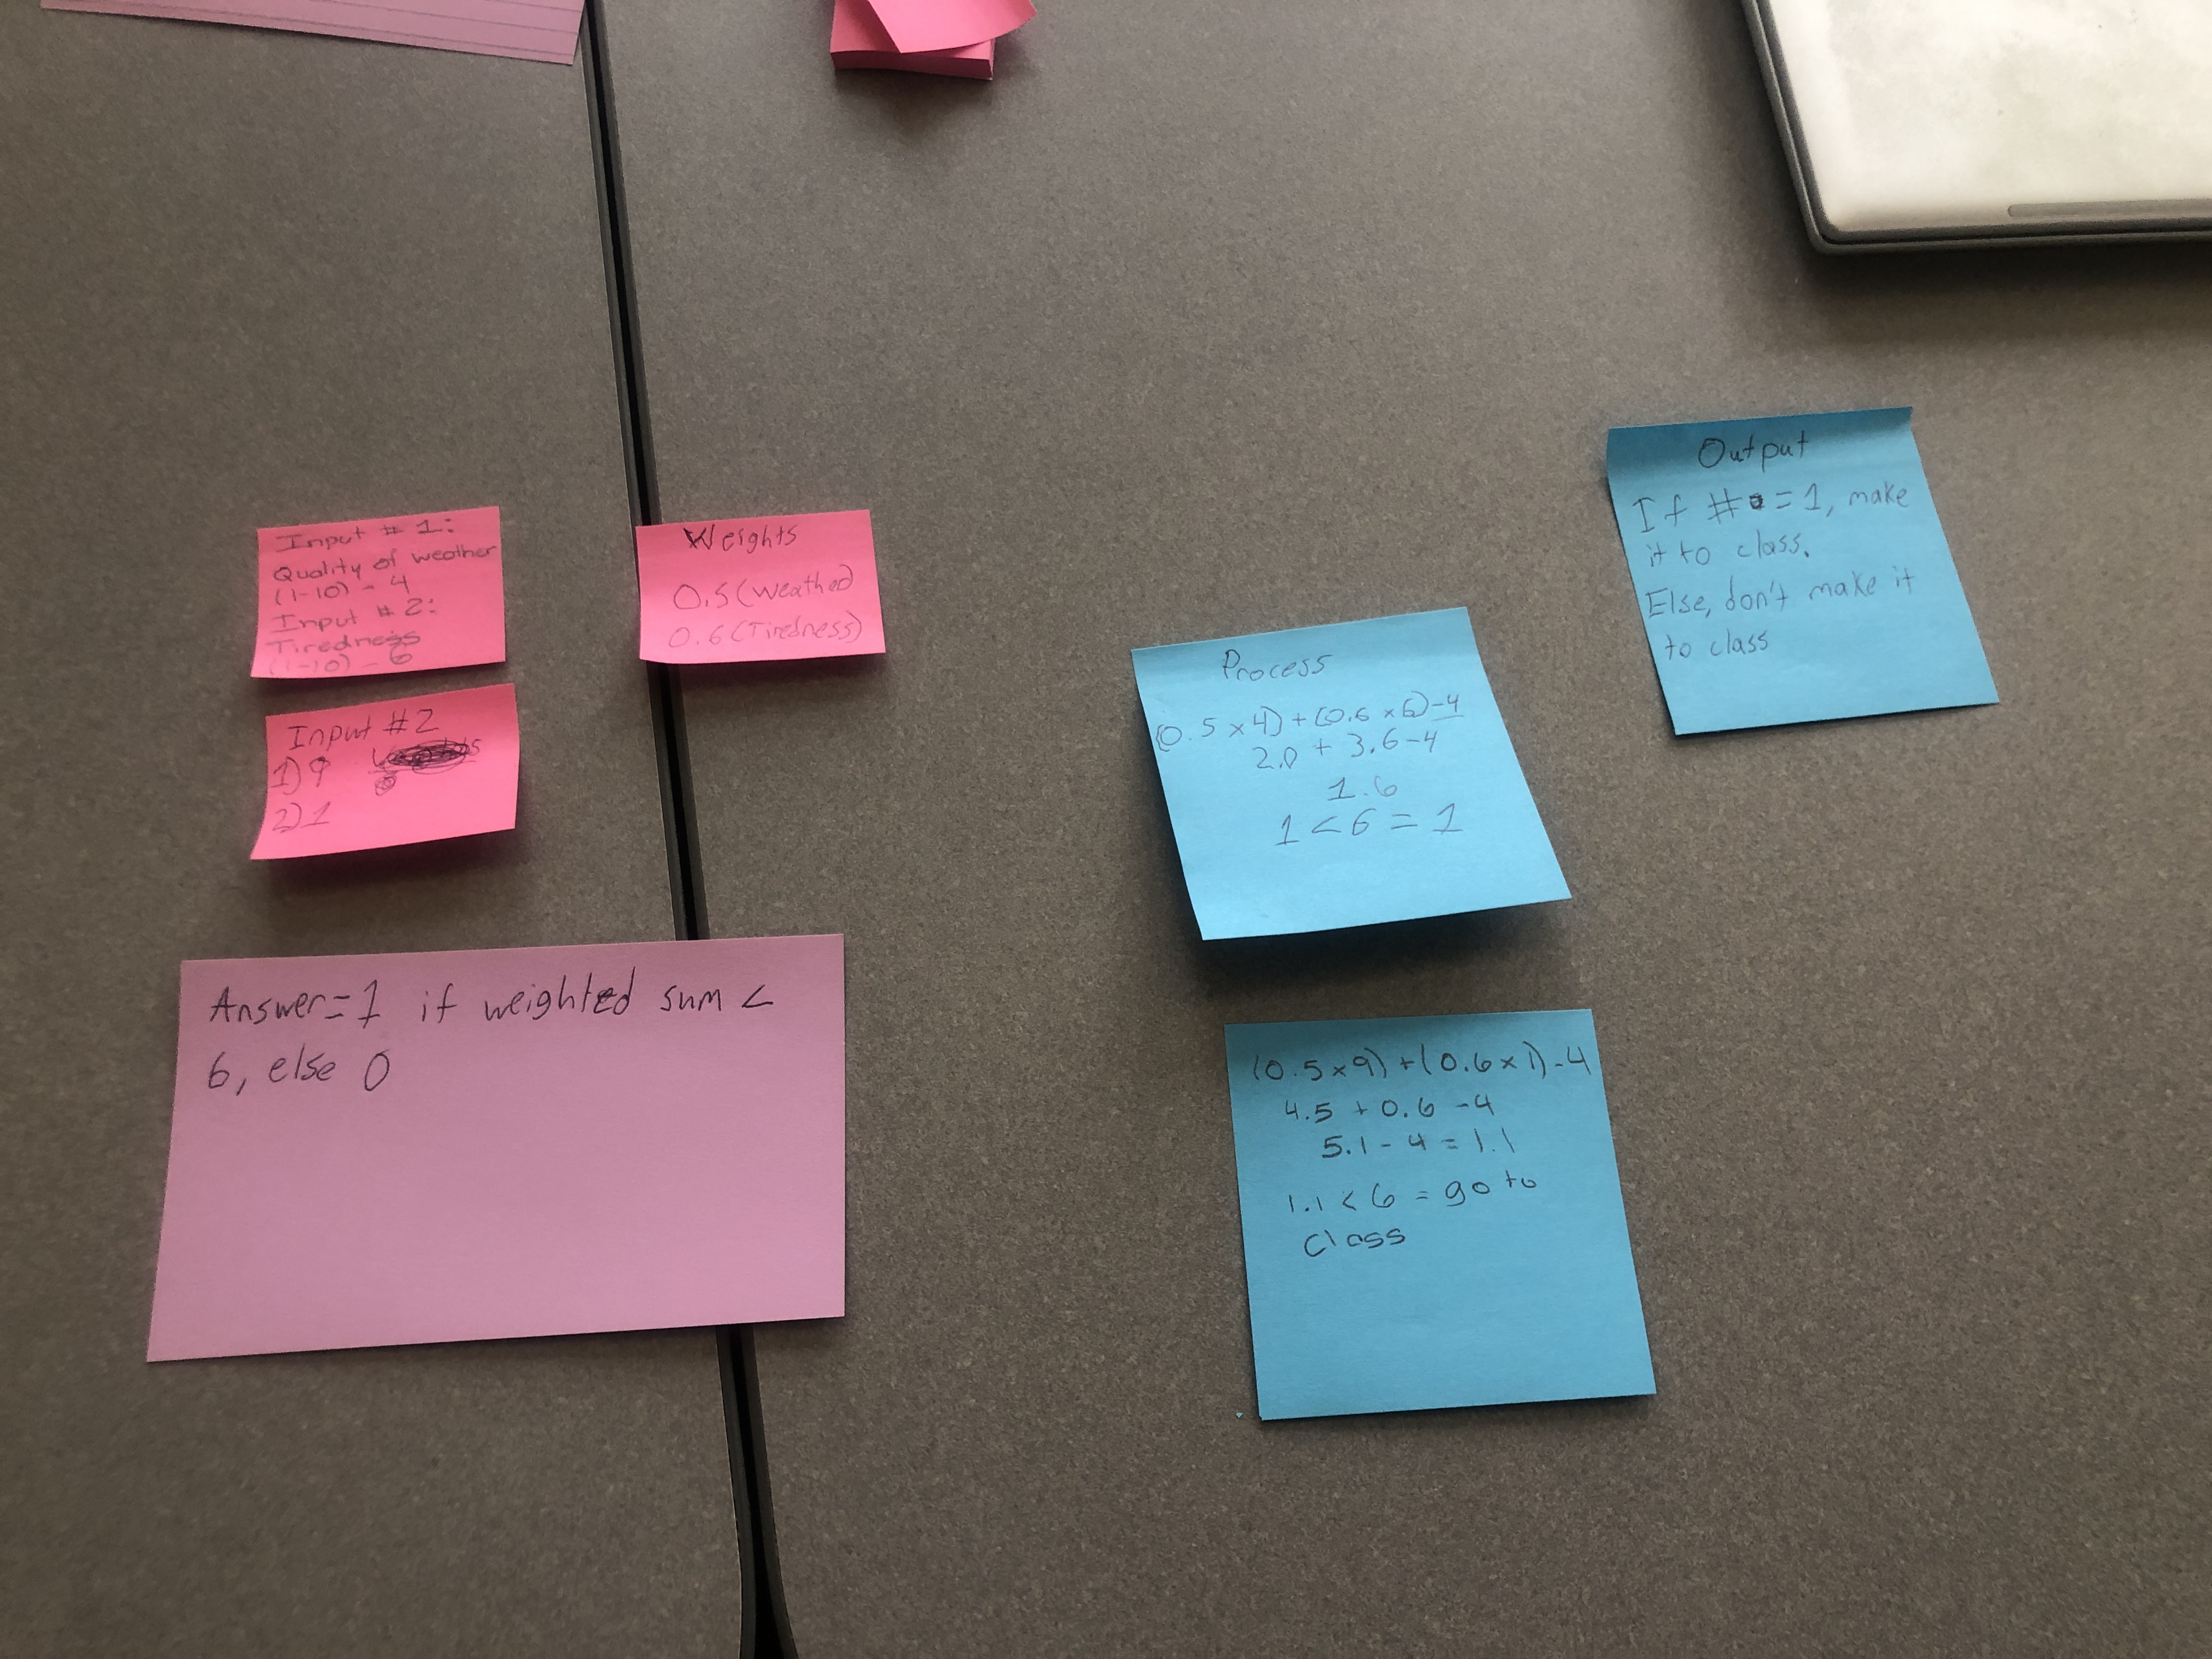 Input #1:
Quality of weather
(1-10) - 4
Input #2:
Tiredness
(1-10) - 6
Input #2
1) 9
2) 1
Answer = 1 if weighted sum <
6, else 0
Weights
0.5 (weather)
0.6 (Tiredness)
Process
(0.5 x 4) + (0.6 x 6) - 4
2.0 + 3.6 - 4
1.6
1 < 6 = 1
(0.5 x 9) + (0.6 x 1) - 4
4.5 + 0.6 - 4
5.1 - 4 = 1.1
1.1 < 6 = go to
class
Output
If # = 1, make
it to class.
Else, don't make it
to class